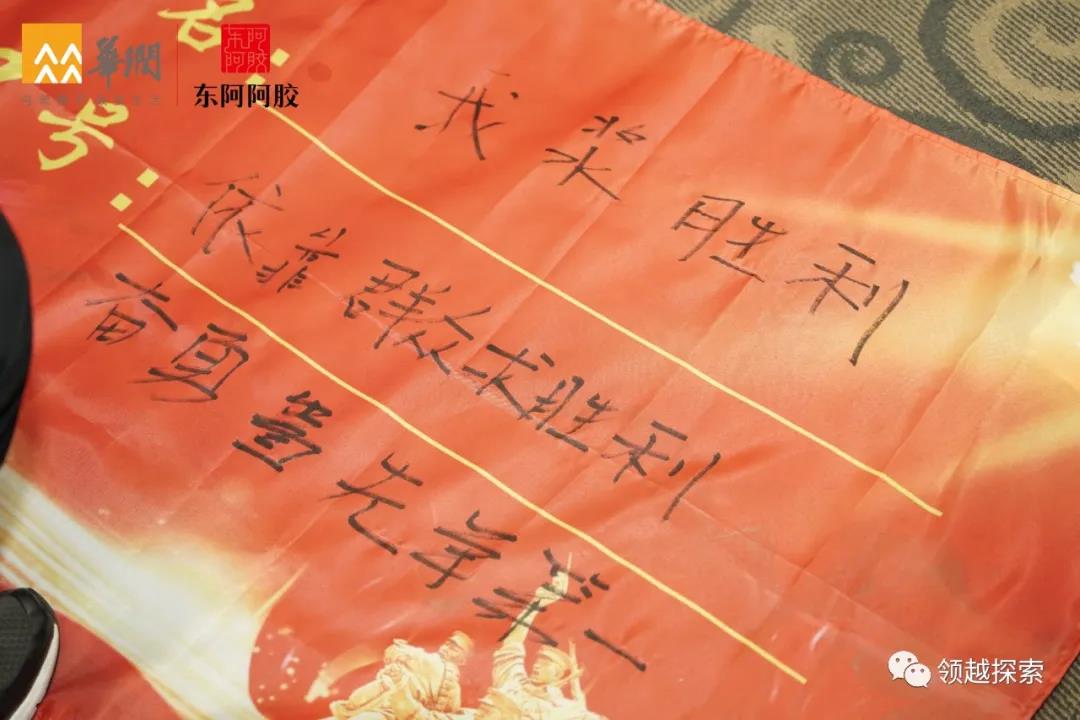 華潤
东阿阿胶
东阿阿胶
名:
号:
我浆胜利
依靠群众求胜利
奋勇当先争第一
领越探索